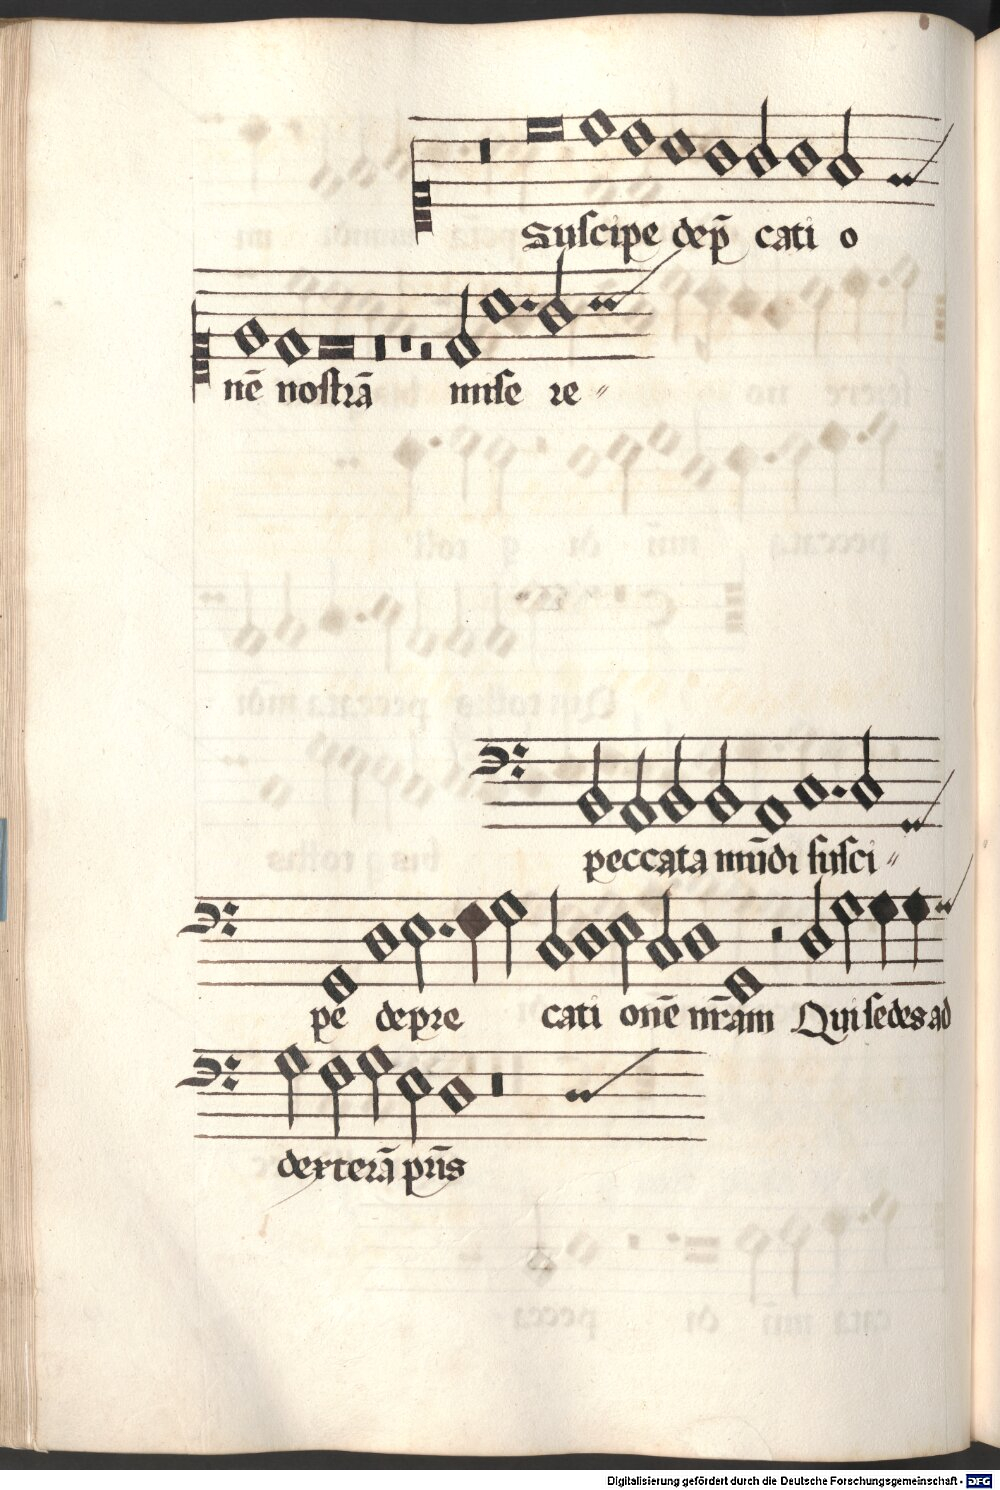 Suscipe dep̄ cati o
nē nostrā mise re〃
peccata mūdi susci〃
pe depre cati onē nr̄am Qui sedes ad
dexterā pr̄is
Digitalisierung gefördert durch die Deutsche Forschungsgemeinschaft - DFG